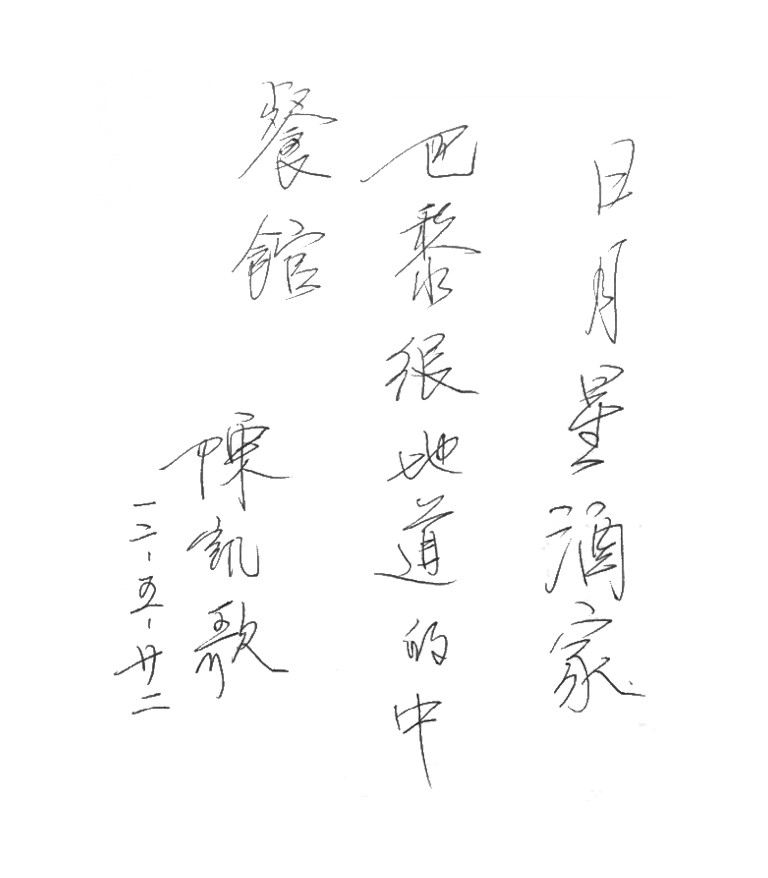 日月星酒家
巴黎很地道的中
餐館
陳凱歌
一二-五-廿二